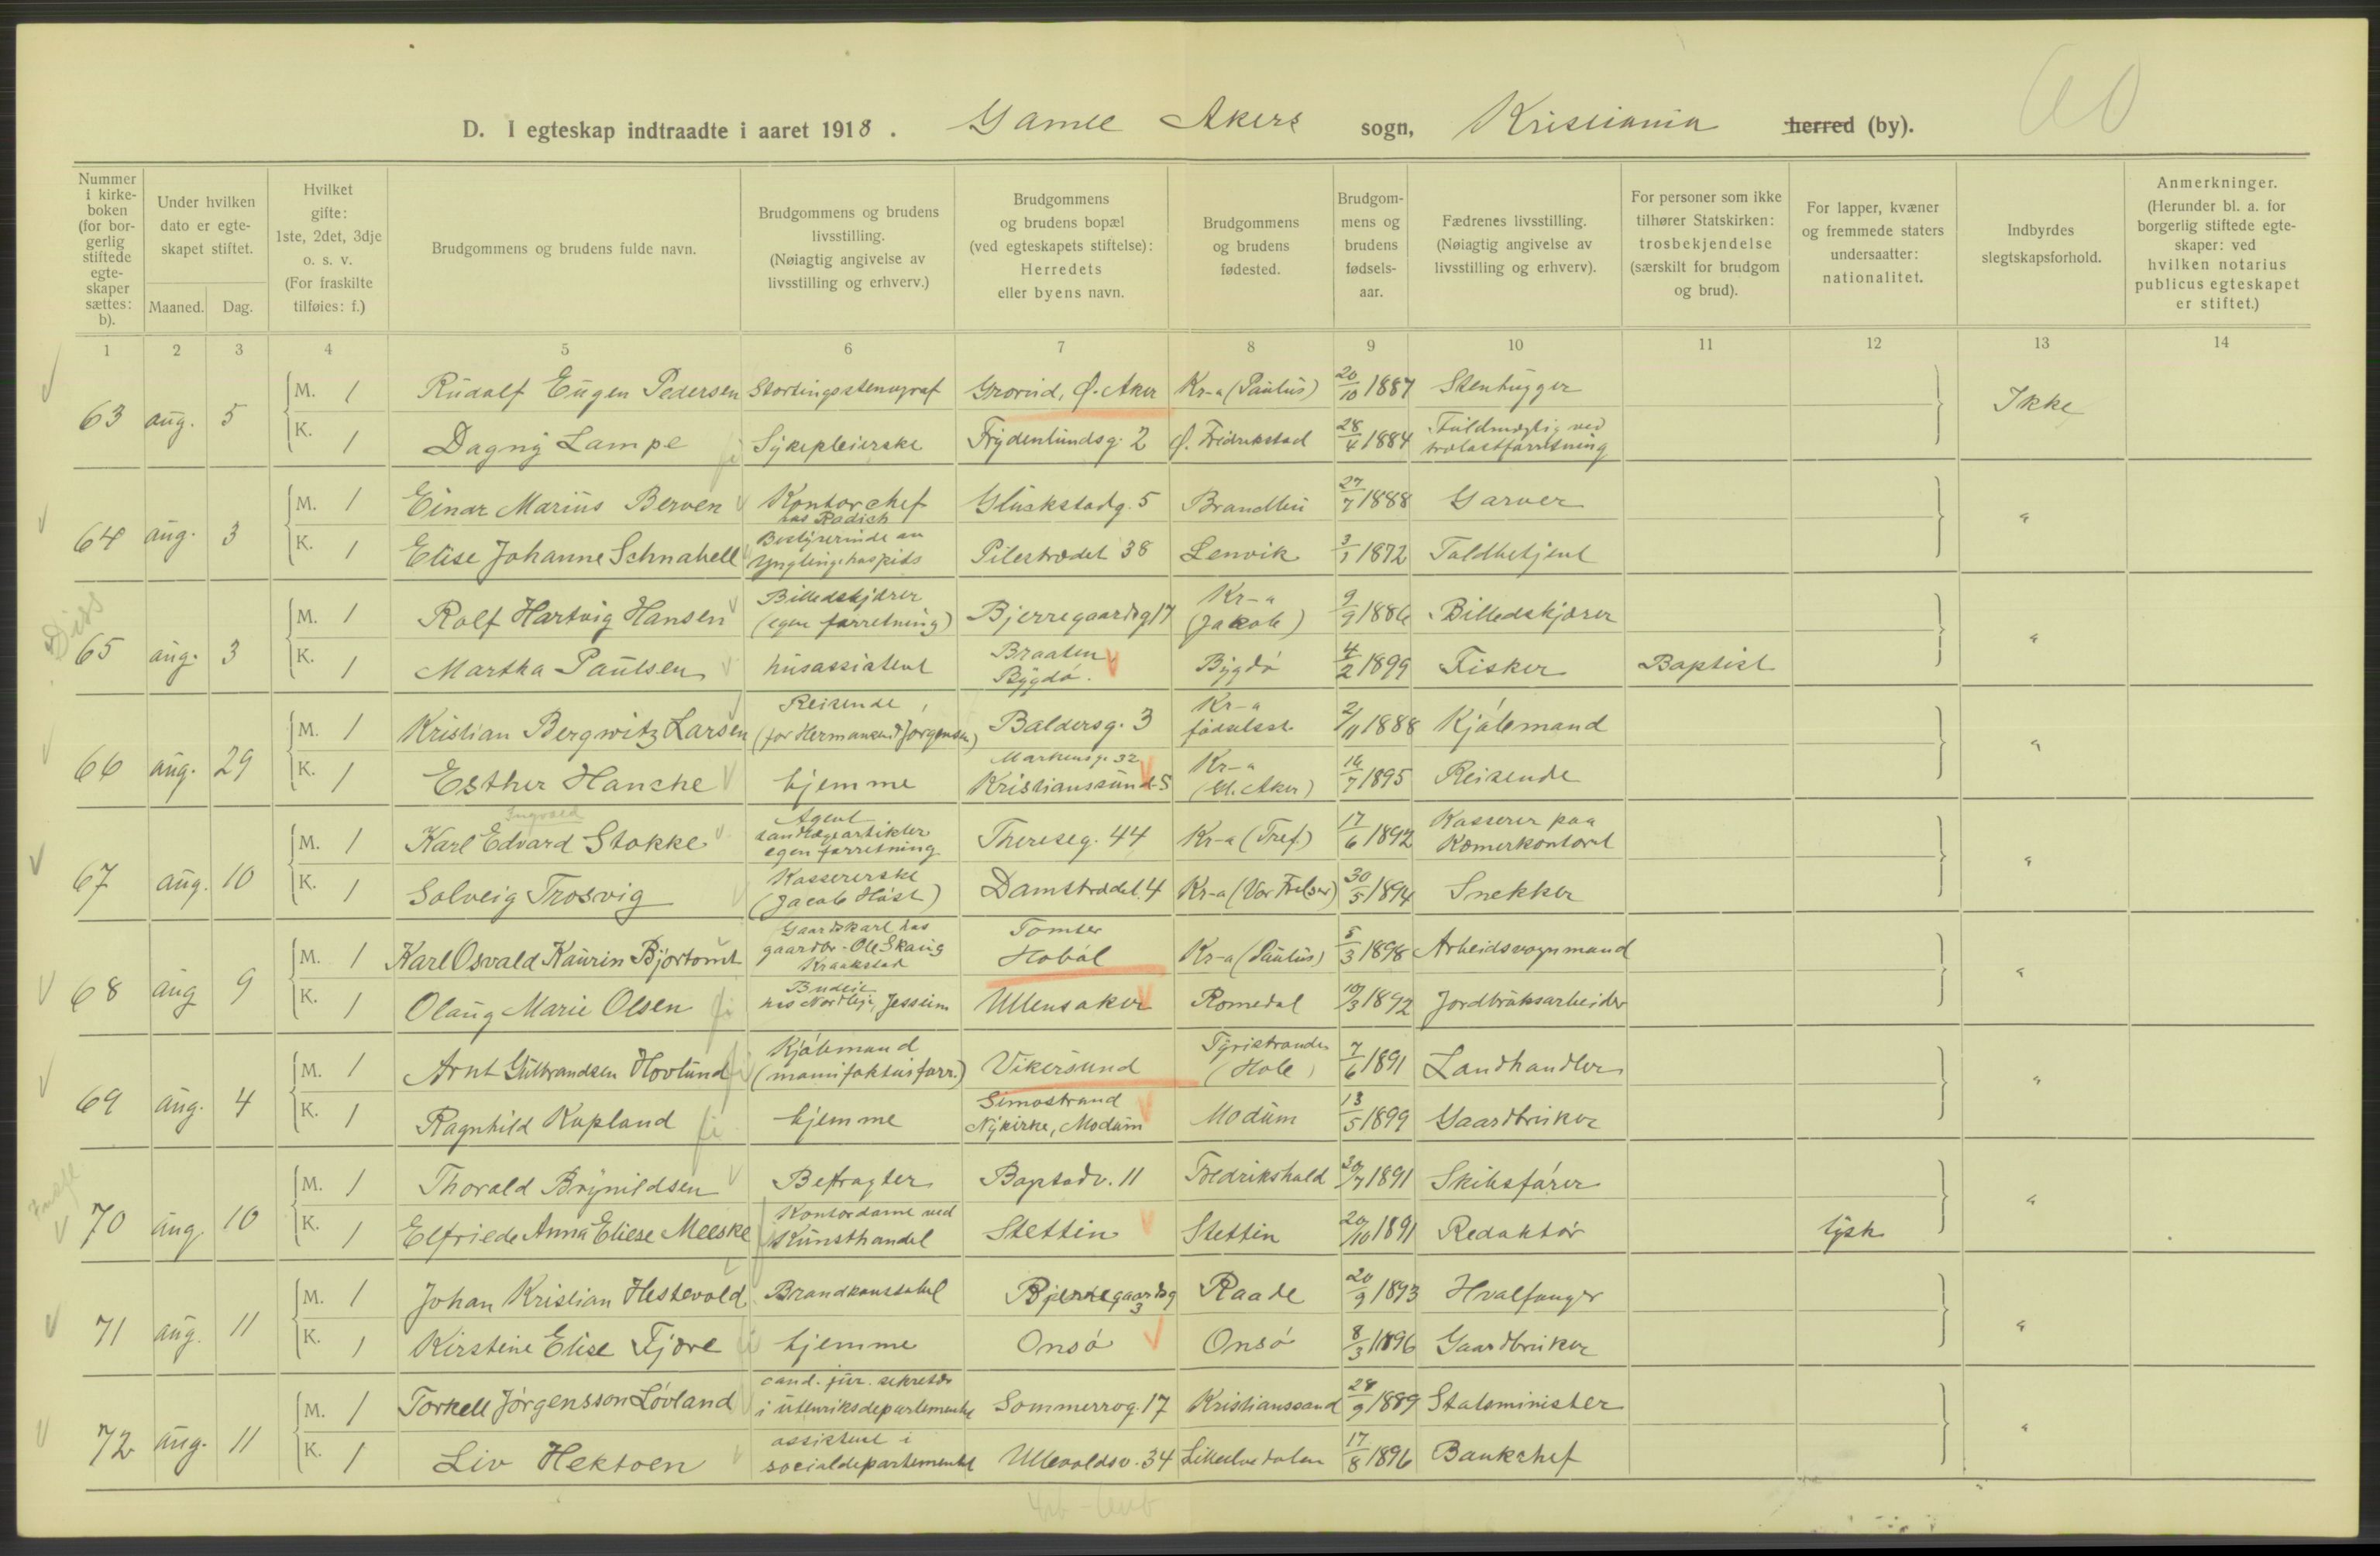 D. I egteskap indtraadte i aaret 1918. Gamle Akers sogn, Kristiania herred (by).
Nummer i kirkeboken (for borgerlig stiftede egteskaper sættes: b).
Under hvilken dato er egteskapet stiftet.
Maaned. Dag.
Hvilket gifte: 1ste, 2det, 3dje o. s. v. (For fraskilte tilføies: f.)
Brudgommens og brudens fulde navn.
Brudgommens og brudens livsstilling. (Nøiagtig angivelse av livsstilling og erhverv.)
Brudgommens og brudens bopæl (ved egteskapets stiftelse): Herredets eller byens navn.
Brudgommens og brudens fødested.
Brudgommens og brudens fødselsaar.
Fædrenes livsstilling. (Nøiagtig angivelse av livsstilling og erhverv).
For personer som ikke tilhører Statskirken: trosbekjendelse (særskilt for brudgom og brud).
For lapper, kvæner og fremmede staters undersaatter: nationalitet.
Indbyrdes slegtskapsforhold.
Anmerkninger. (Herunder bl. a. for borgerlig stiftede egteskaper: ved hvilken notarius publicus egteskapet er stiftet.)
1 2 3 4 5 6 7 8 9 10 11 12 13 14
63 aug. 5 M. 1 Rudolf Eugen Pedersen Stortingsstenograf Grorud, Ø. Aker Kr-a (Paulus) 20/10 1887 Stenhugger Ikke
K. 1 Dagny Lampe Sykepleierske Frydenlundsg. 2 Ø. Fredrikstad 28/4 1884 Fuldmægtig ved trælastforretning
64 aug. 3 M. 1 Einar Marius Berven Kontorchef hos Radich Glückstadg. 5 Brandbu 27/7 1888 Garver "
K. 1 Elise Johanne Schnabell Bestyrerinde av Ynglingehospits Pilestrædet 38 Lenvik 3/1 1872 Toldbetjent
Diss
65 aug. 3 M. 1 Rolf Hartvig Hansen Billedskjærer (egen forretning) Bjerregaardsg 17 Kr-a (Jakob) 9/9 1886 Billedskjærer "
K. 1 Martha Paulsen husassistent Braaten Bygdö. Bygdö 4/2 1899 Fisker Baptist
66 aug. 29 M. 1 Kristian Bergwitz Larsen Reisende (for Hermansen & Jørgensen) Baldersg. 3 Kr-a fødselsst. 2/11 1888 Kjøbmand "
K. 1 Esther Hancke hjemme Markensg. 32 Kristianssund S Kr-a (Gl. Aker) 16/7 1895 Reisende
Ingvald
67 aug. 10 M. 1 Karl Edvard Stokke Agent tandlægeartikler egen forretning Thereseg. 44 Kr-a (Tref.) 17/6 1892 Kasserer paa Kæmnerkontoret "
K. 1 Solveig Trosvig Kassererske (Jacob Høst) Damstrædet 4 Kr-a (Vor Frelser) 30/5 1894 Snekker
68 aug 9 M. 1 Karl Osvald Kaurin Bjortomt Gaardskarl hos gaardbr. Ole Skaug Kraakstad Tomter Hobøl Kr-a (Paulus) 5/3 1898 Arbeidsvognmand "
K. 1 Olaug Marie Olsen Budeie hos Nordbye, Jessheim Ullensaker Romedal 10/3 1892 Jordbruksarbeider
69 aug. 4 M. 1 Arnt Gulbrandsen Hovlund Kjøbmand (manufakturforr.) Vikersund Tyristranden (Hole) 7/6 1891 Landhandler "
K. 1 Ragnhild Kopland hjemme Simostrand Nykirke, Modum Modum 13/5 1899 Gaardbruker
70 aug. 10 M. 1 Thorald Brynildsen Befragter Bogstadv. 11 Fredrikshald 30/7 1891 Skibsfører "
K. 1 Elfriede Anna Eliese Meeske Kontordame ved Kunsthandel Stettin Stettin 20/10 1891 Redaktør tysk
71 aug. 11 M. 1 Johan Kristian Hestevold Brandkonstabel Bjerregaardsg 3 Raade 20/9 1893 Hvalfanger "
K. 1 Kirstine Elise Fjære hjemme Onsø Onsø 8/3 1896 Gaardbruker
72 aug. 11 M. 1 Torkell Jørgensson Løvland cand. jur. sekretær i utenriksdepartementet Sommerrog. 17 Kristianssand 28/9 1889 Statsminister "
K. 1 Liv Hektoen assistent i socialdepartementet Ullevoldsv. 34 Lilleelvedalen 17/8 1896 Bankchef